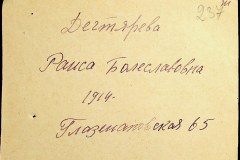 237
Дегтярева
Раиса Болеславовна
1914-
65